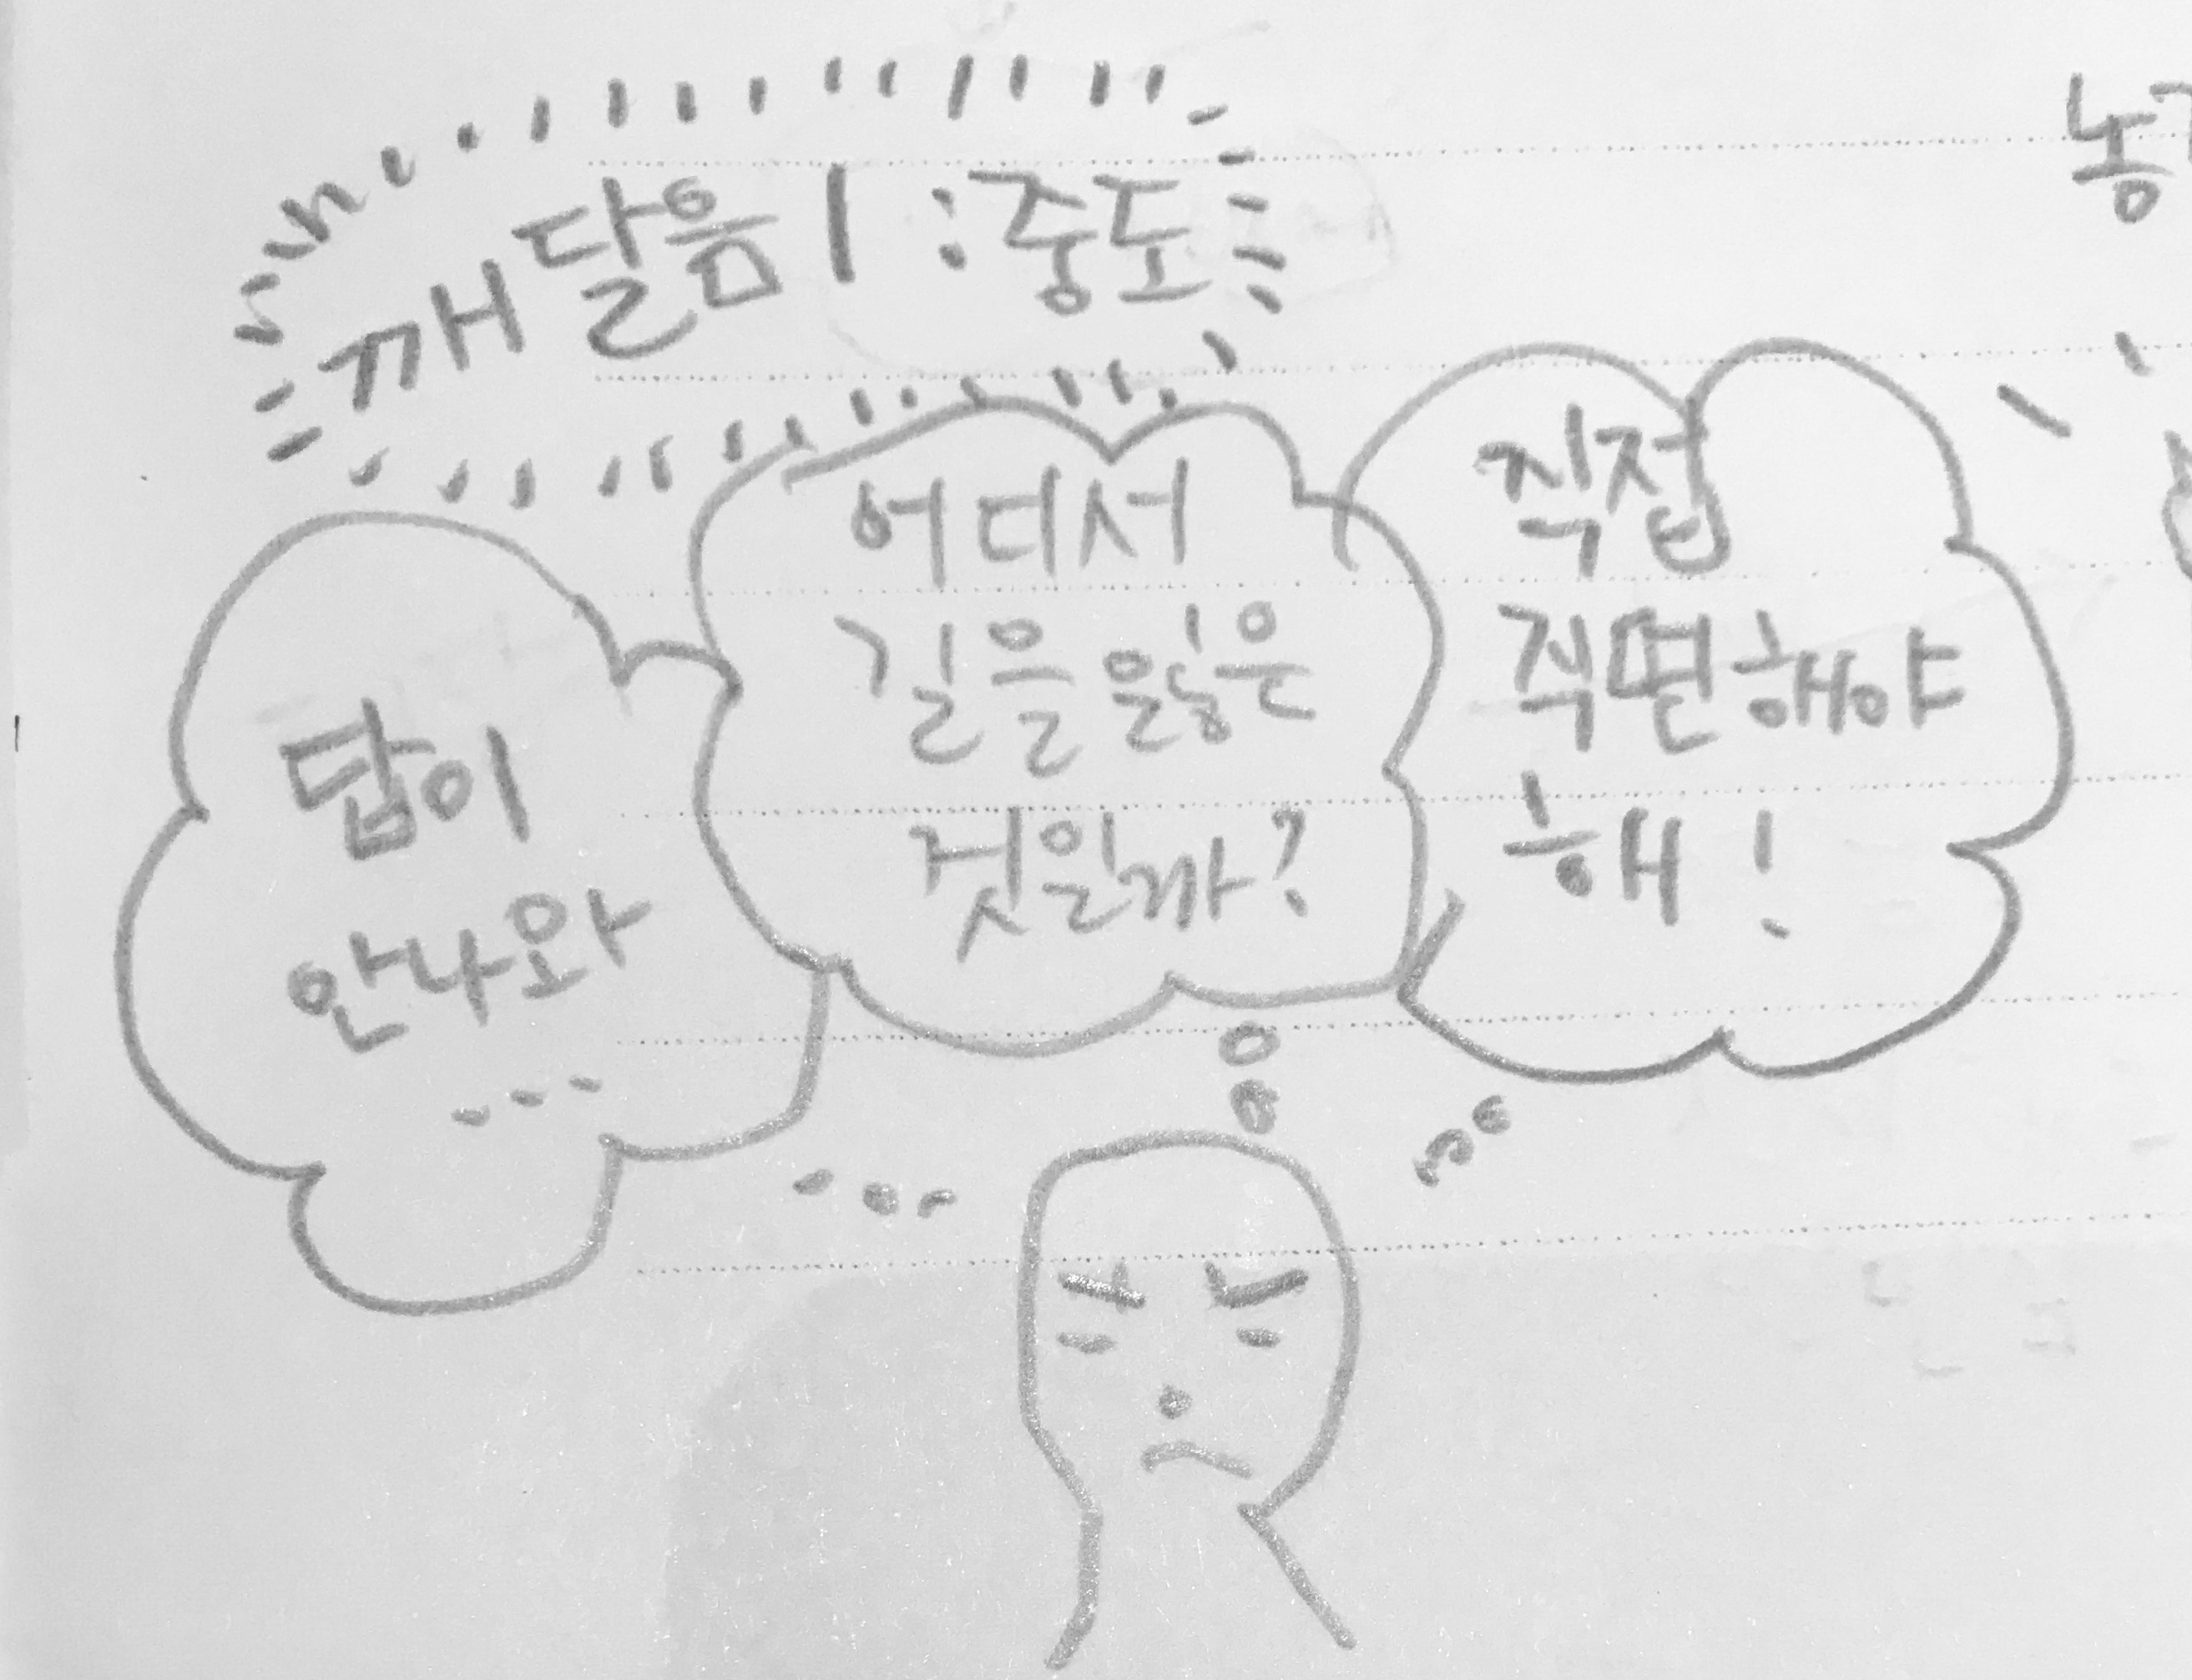 깨달음 1 : 중도
답이
안나와
...
어디서
길을 잃은
것일까?
직접
직면해야
해!